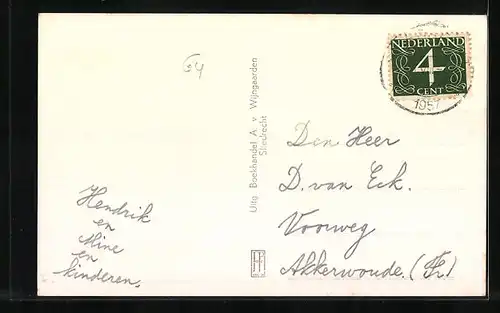 64
NEDERLAND
4
CENT
1957
Uitg Boekhandel A. v. Wijngaarden
Sliedrecht
Den Heer
D. van Eck.
Voorweg
Akkerwoude. (Fr.)
Hendrik
en
Mine
en
kinderen.